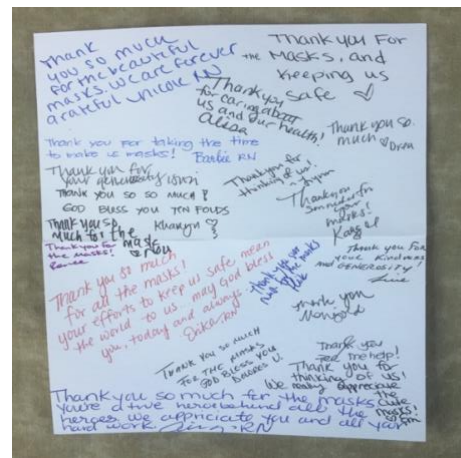 Thank
you so much
for the beautiful
masks. We are forever
grateful Nicole RN
Thank you For
the Masks, and
keeping us
safe
Thank you
for caring about
us and our health!
Alisa
Thank you so
much
Thank you for taking the time
to make us masks! Barbie RN
Thank you for
your generosity
THANK YOU SO SO MUCH!
GOD BLESS YOU TEN FOLDS
Thank you for
thinking of us!
Thank you
so much for
your
masks!
Thank you so
much for the mask
Thank you for
the masks!
Thank you For
your Kindness
and GENEROSITY!
Thank you so much
for all the masks!
your efforts to keep us safe mean
the world to us. may God bless
you, today and always
Erika RN
Thank you so
much for the masks
Thank you
THANK YOU SO MUCH
FOR THE MASKS
GOD BLESS YOU
Thank you
for the help!
Thank you for
thinking of us!
We really appreciate
the
cute
masks!
Thank you so much for the masks
you're a true hero behind all the
heroes. we appriciate you and all your
hard work RN